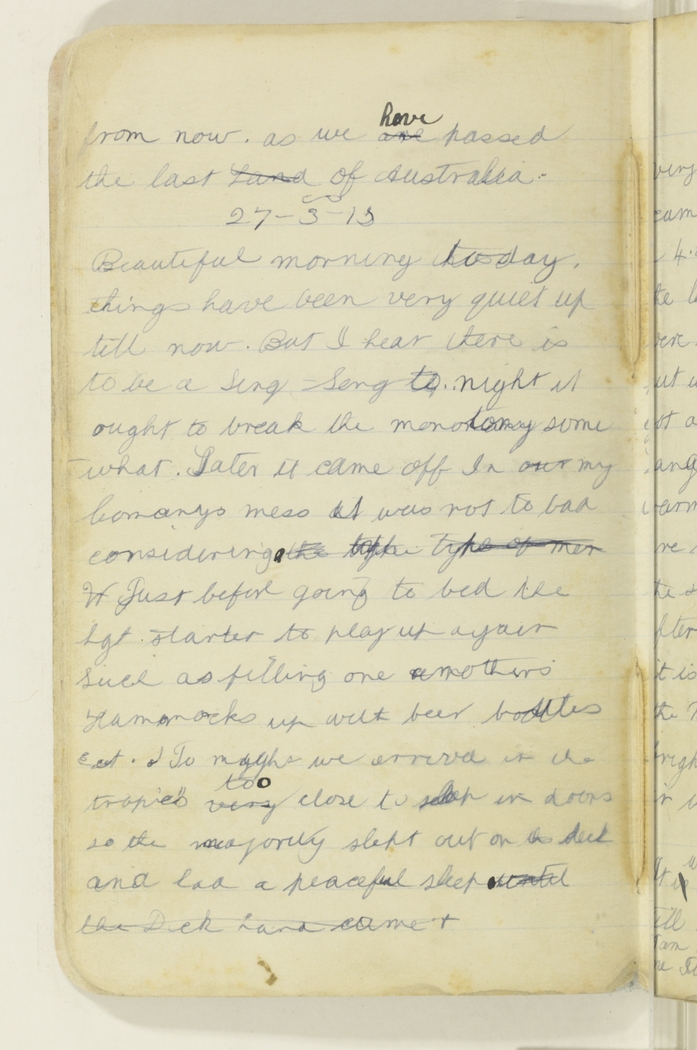 from now. as we are have passed
the last Land of Australia.
27-3-15
Beautiful morning to day.
things have been very quiet up
till now. But I hear there is
to be a Sing Song to. night it
ought to break the monotomy some
what. Later it came off In our my
Companys mess it was not to bad
considering the type of men
Just before going to bed the
Sgt. starter to play up again
Such as filling one anothers
Hammocks up with beer bottles
ect. To night we arrived in the
tropics very too close to sleep in doors
so the majority slept out on deck
and had a peaceful sleep until
the Deck hand came +